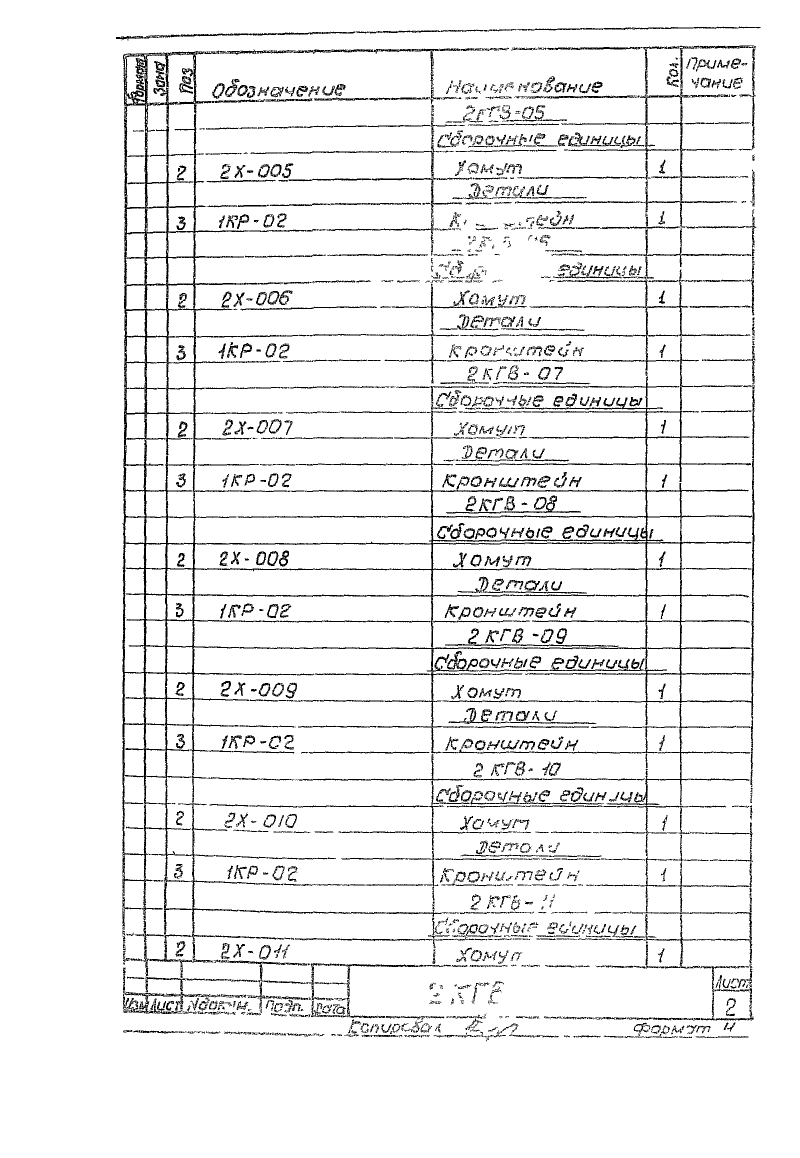 Формат Зона Поз Обозначение Наименование Кол. Приме-
чание
2КГВ-05
Сборочные единицы
2 2Х-005 Хомут 1
Детали
3 1КР-02 1
единицы
2 2Х-006 Хомут 1
Детали
3 1КР-02 Кронштейн 1
2КГВ-07
Сборочные единицы
2 2Х-007 Хомут 1
Детали
3 1КР-02 Кронштейн 1
2КГВ-08
Сборочные единицы
2 2Х-008 Хомут 1
Детали
3 1КР-02 Кронштейн 1
2КГВ-09
Сборочные единицы
2 2Х-009 Хомут 1
Детали
3 1КР-02 Кронштейн 1
2КГВ-10
Сборочные единицы
2 2Х-010 Хомут 1
Детали
3 1КР-02 Кронштейн 1
2КГВ-11
Сборочные единицы
2 2Х-011 Хомут 1
2КГВ Лист
Изм Лист №докум. Подп. Дата 2
Копировал Формат 4